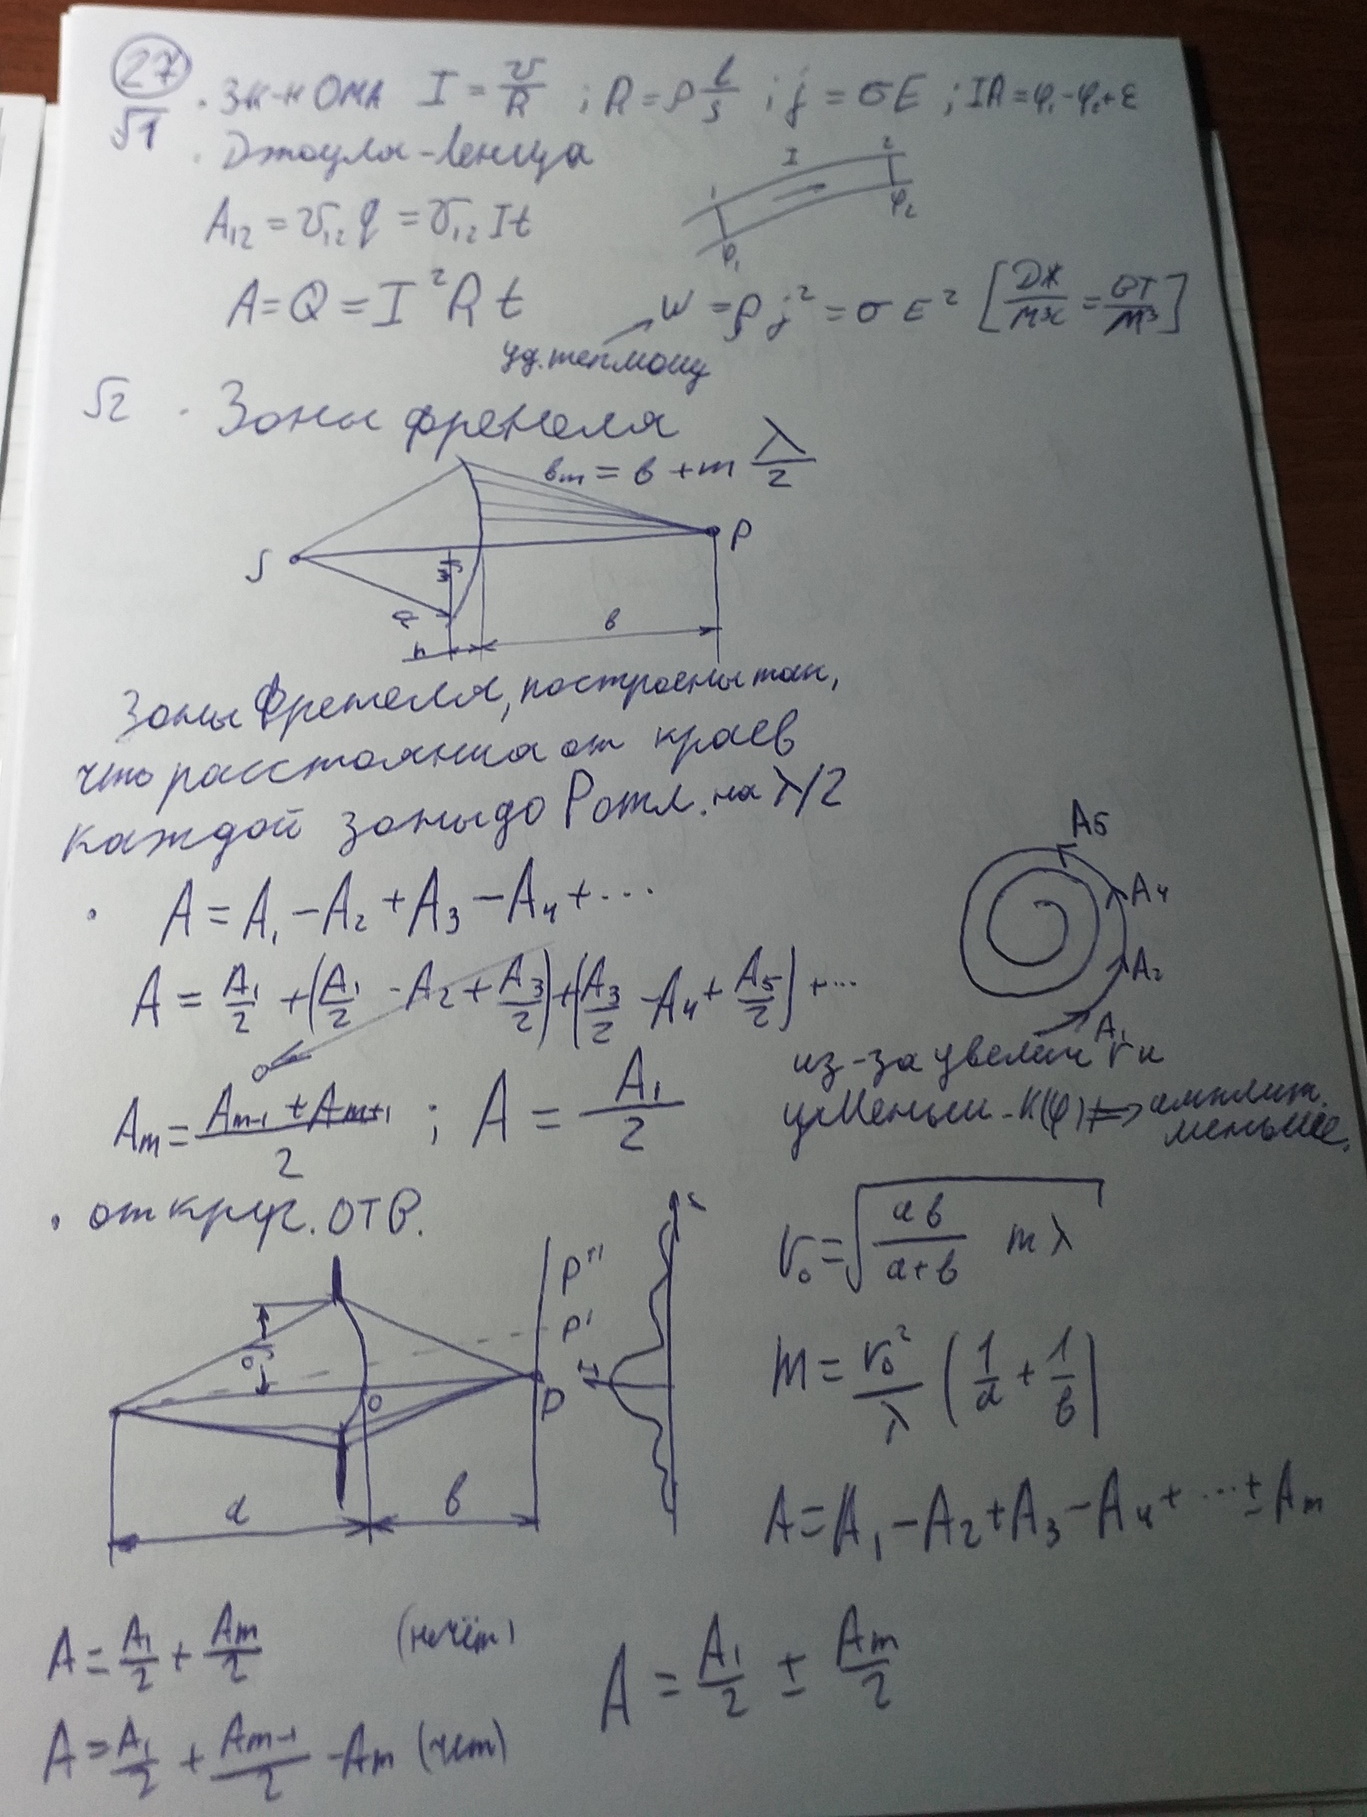 27
√1 · Зк-н Ома I = U/R ; R = ρ l/S ; j = σE ; IR = φ₁-φ₂+ε
· Джоуля-Ленца
I
1
2
φ₁
φ₂
A₁₂ = U₁₂ q = U₁₂ It
A = Q = I²Rt
W = ρj² = σE² [Дж/м³с = Вт/м³]
уд. тепл мощ
√2 · Зоны френеля
bₘ = b + m λ/2
S
P
a
h
b
Зоны Френеля, построены так,
что расстояния от краев
каждой зоны до P отл. на λ/2
· A = A₁ - A₂ + A₃ - A₄ + ...
A = A₁/2 + (A₁/2 - A₂ + A₃/2) + (A₃/2 - A₄ + A₅/2) + ...
0
A₅
A₄
A₂
A₁
из-за увелич r и
уменьш - K(φ) => амплит.
меньше.
Aₘ = (Aₘ₋₁ + Aₘ₊₁)/2 ; A = A₁/2
· от круг. ОТВ.
P''
P'
P
O
r₀
a
b
r₀ = √(ab/(a+b) mλ)
m = r₀²/λ (1/a + 1/b)
A = A₁ - A₂ + A₃ - A₄ + ... ± Aₘ
A = A₁/2 + Aₘ/2 (нечёт)
A = A₁/2 ± Aₘ/2
A = A₁/2 + Aₘ₋₁/2 - Aₘ (чет)